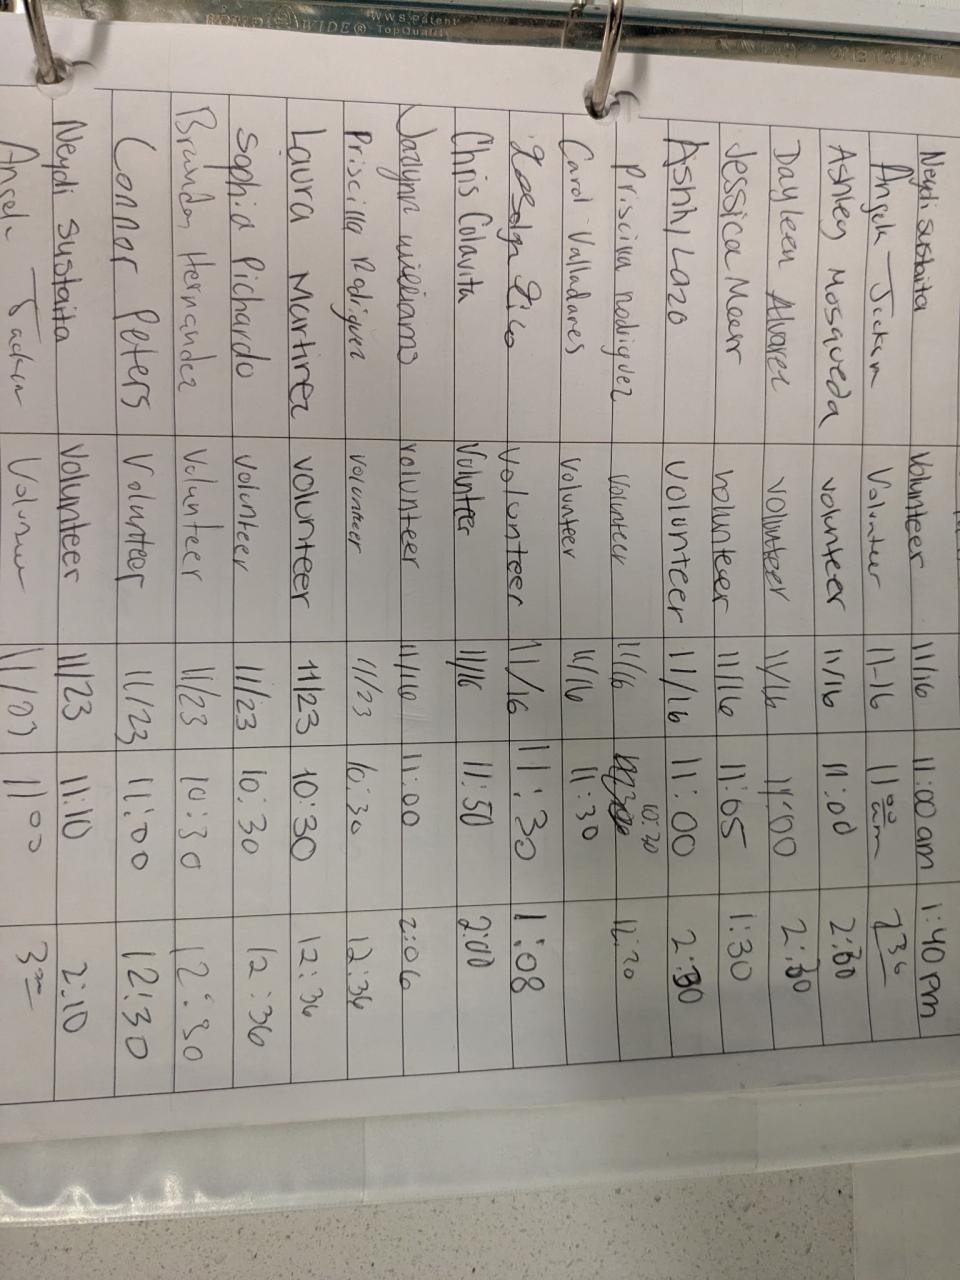 Neydi Sustaita Volunteer 11/16 11:00 am 1:40 pm
Angela Volunteer 11-16 11 00 am 2 30
Ashley Mosqueda volunteer 11/16 11:00 2:30
Dayleen Alvarez volunteer 11/16 11:00 2:30
Jessica volunteer 11/16 11:05 1:30
Ashly Lazo volunteer 11/16 11:00 2:30
Priscilla rodriguez volunteer 11/16 10:30 12:20
Carol Valladares volunteer 11/16 11:30
volunteer 11/16 11:30 1:08
Chris Colavita Volunteer 11/16 11:50 2:00
Jazlynn williams volunteer 11/16 11:00 2:06
Priscilla Rodriguez volunteer 11/23 10:30 12:36
Laura Martinez volunteer 11/23 10:30 12:36
Sophia Pichardo volunteer 11/23 10:30 12:36
Brandon Hernandez Volunteer 11/23 10:30 12:30
Connor Peters Volunteer 11/23 11:00 12:30
Neydi Sustaita Volunteer 11/23 11:10 2:10
Angela 11/23 11 00 3 00